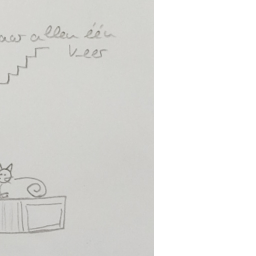 aar allen één
keer